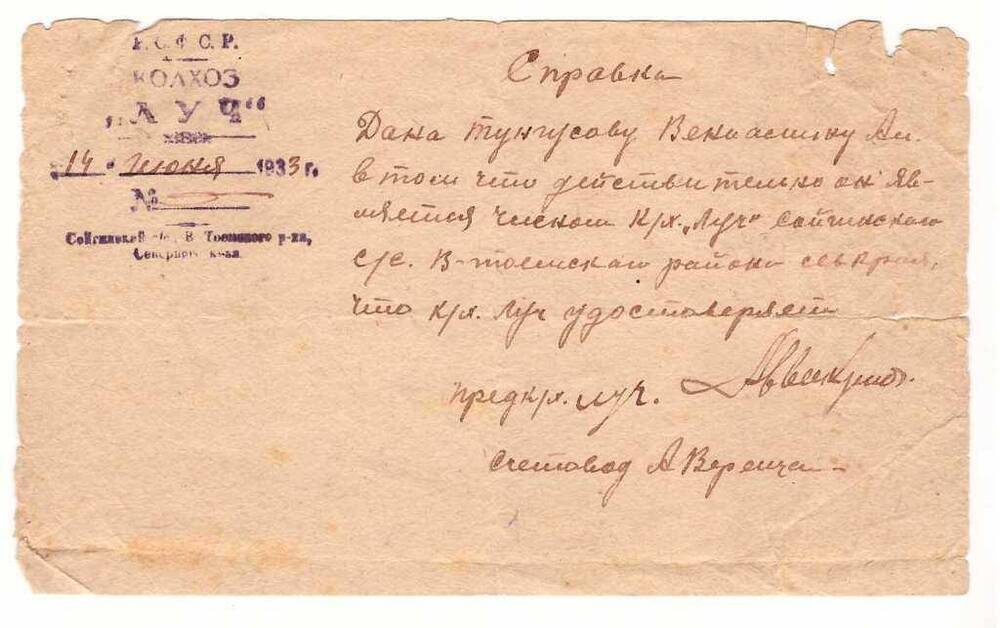 Р.С.Ф.С.Р.
КОЛХОЗ
„ЛУЧ“
„14“ июня 1933 г.
№
Сойгинский с/с, В Тоемского р-на,
Северного края
Справка
Дана Тунгусову Вениамину Ан.
в том что действительно он яв-
ляется членом к/х „Луч“ Сойгинского
с/с. В-тоемскаго района сев края,
что к/х. Луч удостоверяет
предк/х. Луч.
счетовод А